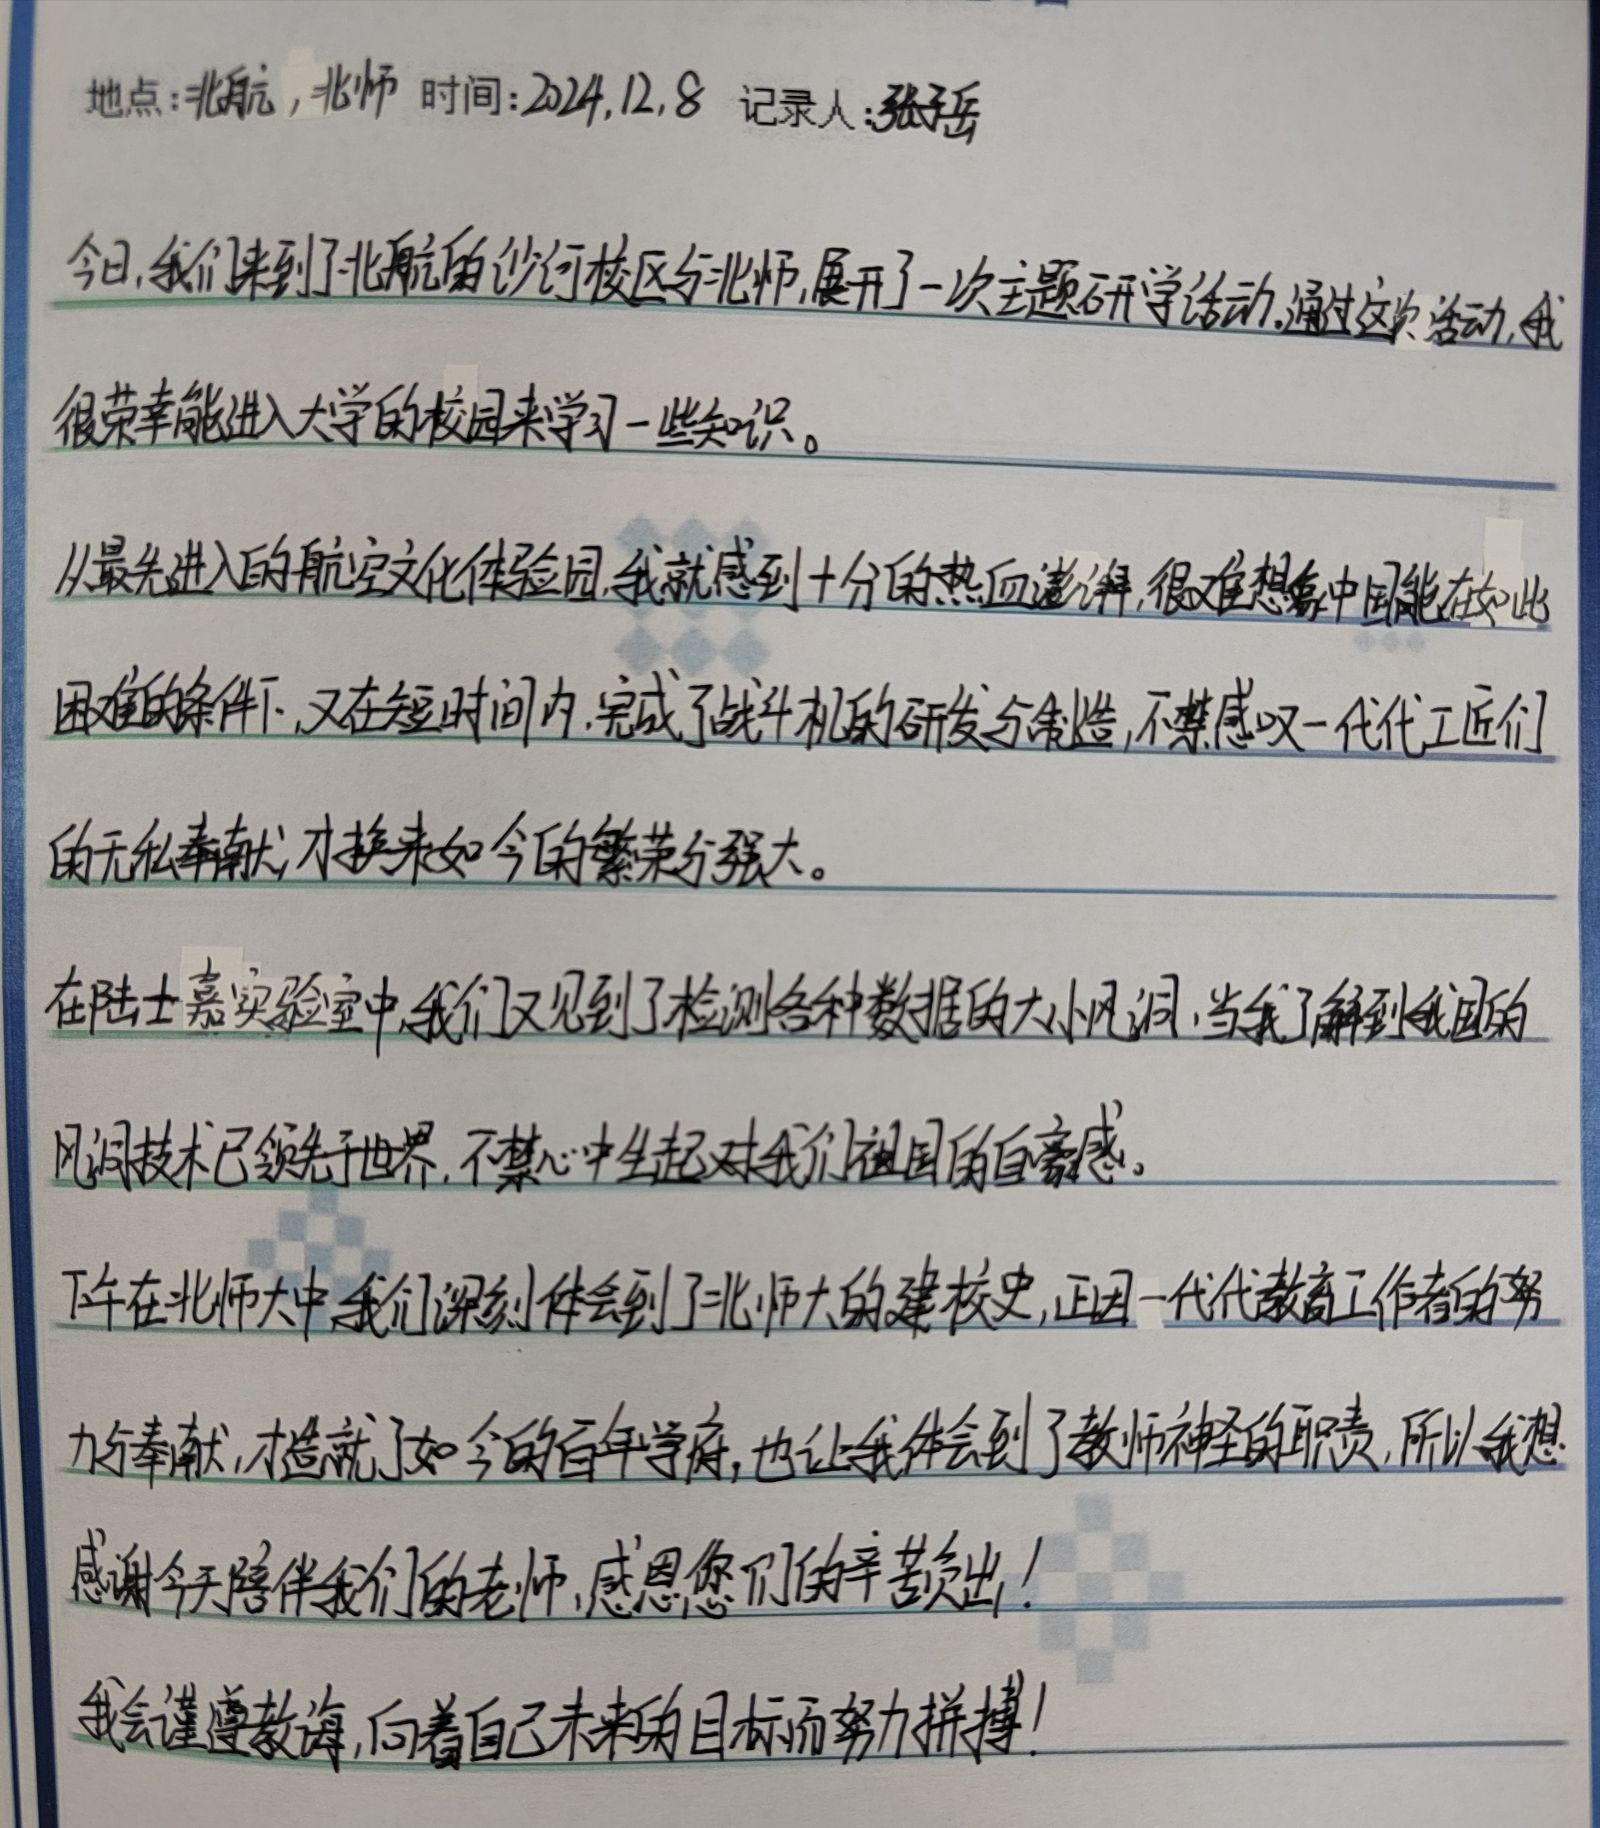 地点:北航,北师 时间:2024.12.8 记录人:张子岳
今日,我们来到了北航的沙河校区与北师,展开了一次主题研学活动。通过这次活动,我
很荣幸能进入大学的校园来学习一些知识。
从最先进入的航空文化体验园,我就感到十分的热血澎湃,很难想象中国能在如此
困难的条件下,又在短时间内,完成了战斗机的研发与制造,不禁感叹一代代工匠们
的无私奉献,才换来如今的繁荣与强大。
在陆士嘉实验室中,我们又见到了检测各种数据的大小风洞,当我了解到我国的
风洞技术已领先于世界,不禁心中生起对我们祖国的自豪感。
下午在北师大中,我们深刻体会到了北师大的建校史,正因一代代教育工作者的努
力与奉献,才造就了如今的百年学府,也让我体会到了教师神圣的职责,所以我想
感谢今天陪伴我们的老师,感恩您们的辛苦付出!
我会谨遵教诲,向着自己未来的目标而努力拼搏!